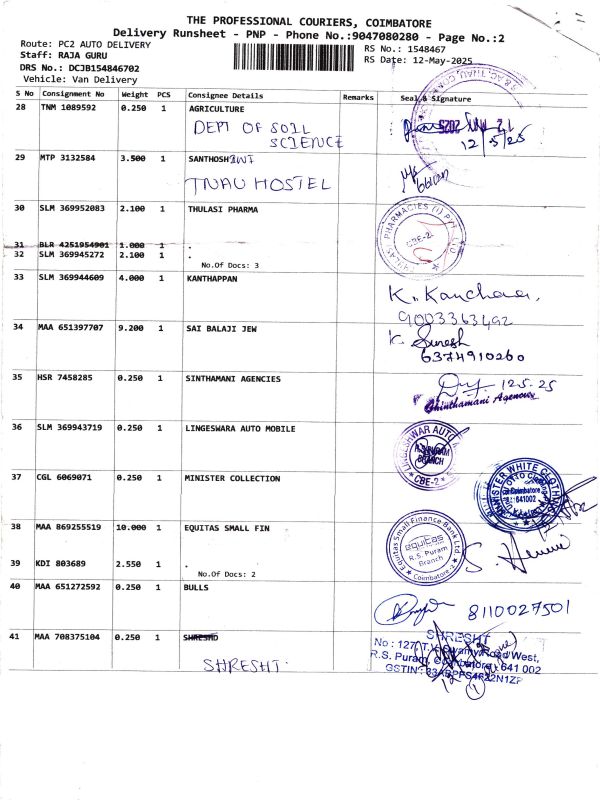 THE PROFESSIONAL COURIERS, COIMBATORE
Delivery Runsheet - PNP - Phone No.:9047080280 - Page No.:2
Route: PC2 AUTO DELIVERY
RS No.: 1548467
Staff: RAJA GURU
RS Date: 12-May-2025
DRS No.: DCJB154846702
Vehicle: Van Delivery
S No Consignment No Weight PCS Consignee Details Remarks Seal & Signature
28 TNM 1089592 0.250 1 AGRICULTURE
DEPT OF SOIL
SCIENCE
12 MAY 2025
12/5/25
29 MTP 3132584 3.500 1 SANTHOSHINI
TNAU HOSTEL
30 SLM 369952083 2.100 1 THULASI PHARMA
PHARMACIES (I) PVT. LTD
CBE-2
31 BLR 4251954901 1.000 1 .
32 SLM 369945272 2.100 1 .
No.Of Docs: 3
33 SLM 369944609 4.000 1 KANTHAPPAN
K. Kanchana,
9003363492
34 MAA 651397707 9.200 1 SAI BALAJI JEW
K. Suresh
6374910260
35 HSR 7458285 0.250 1 SINTHAMANI AGENCIES
12.5.25
Chinthamani Agencies
36 SLM 369943719 0.250 1 LINGESWARA AUTO MOBILE
R.S.PURAM
BRANCH
CBE-2
37 CGL 6069071 0.250 1 MINISTER COLLECTION
MINISTER WHITE CLOTHING
Coimbatore
641002
38 MAA 869255519 10.000 1 EQUITAS SMALL FIN
Equitas Small Finance Bank Ltd
equitas
R.S. Puram
Branch
Coimbatore-2
39 KDI 803689 2.550 1 .
No.Of Docs: 2
40 MAA 651272592 0.250 1 BULLS
8110027501
41 MAA 708375104 0.250 1 SHRESHD
SHRESHT
SHRESHT
No : 127, T.V. Swamy Road West,
R.S. Puram, Coimbatore - 641 002
GSTIN :